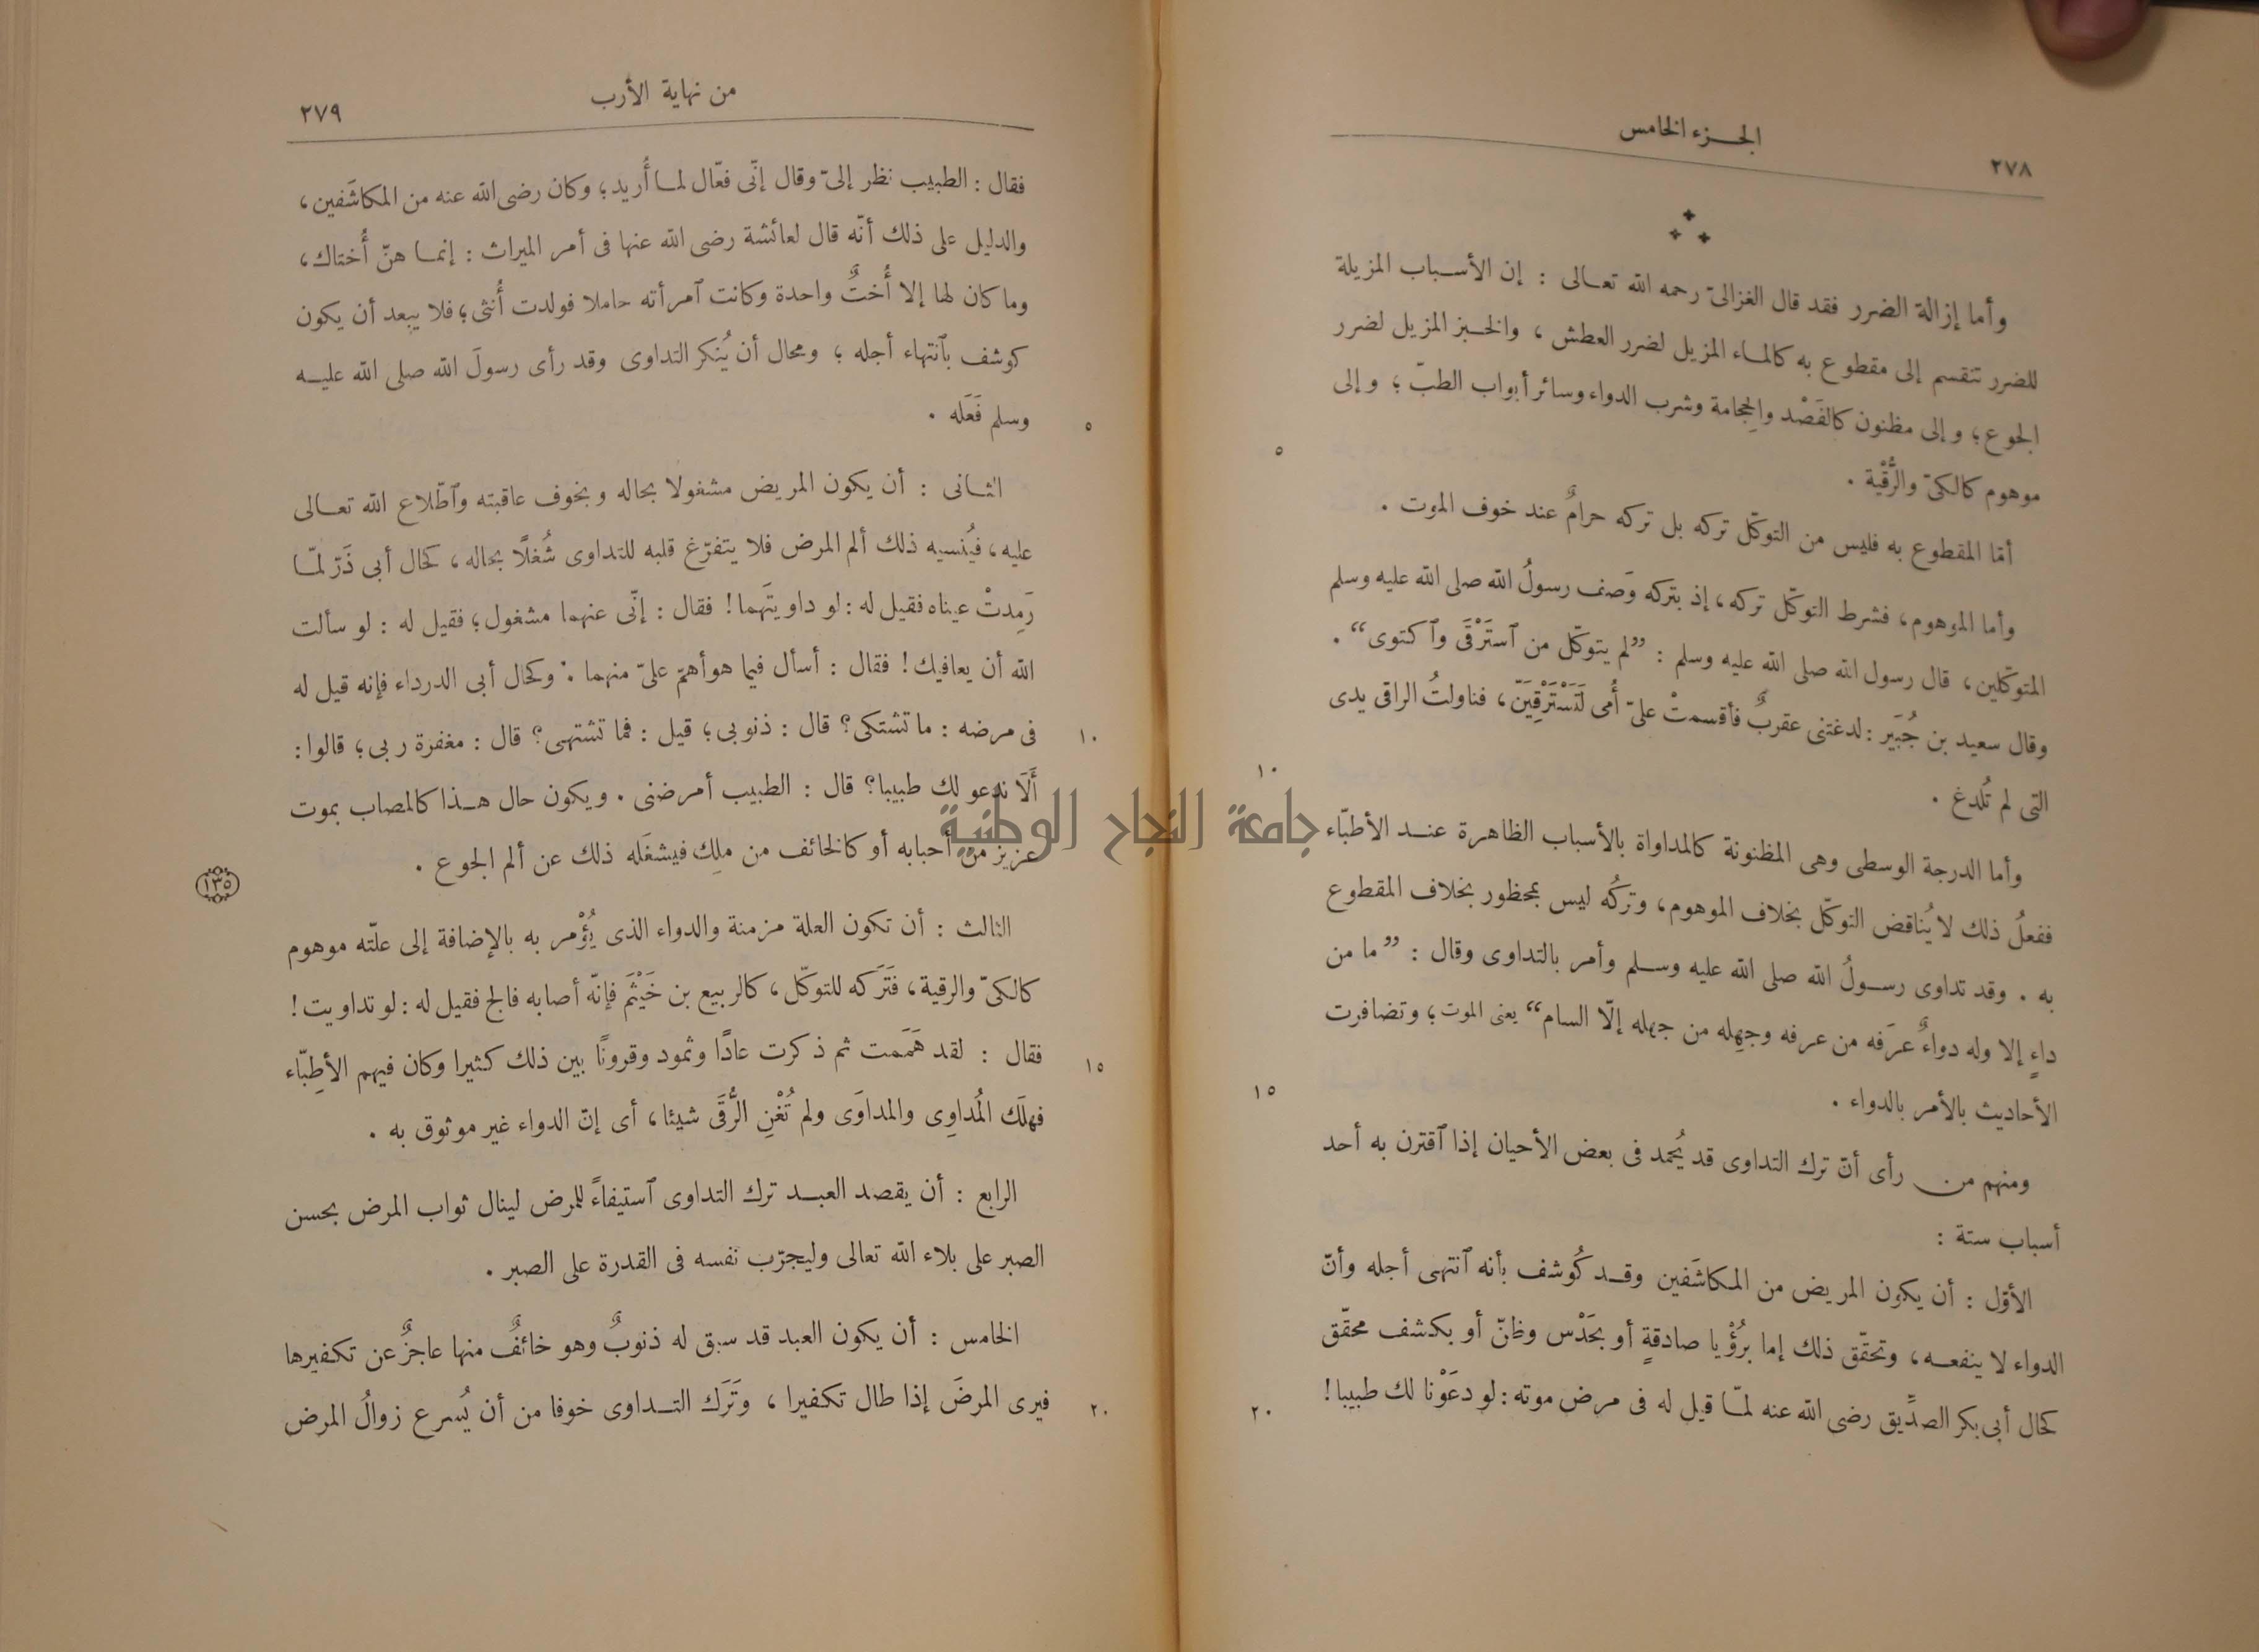 الجزء الخامس
٢٧٨
وأما إزالة الضرر فقد قال الغزالىّ رحمه الله تعالى : إن الأسباب المزيلة
للضرر تنقسم إلى مقطوع به كالماء المزيل لضرر العطش ، والخبز المزيل لضرر
الجوع؛ وإلى مظنون كالفَصْد والحِجامة وشرب الدواء وسائر أبواب الطبّ ؛ وإلى
٥
موهوم كالكىّ والرُّقْية .
أمّا المقطوع به فليس من التوكّل تركه بل تركه حرامٌ عند خوف الموت .
وأما الموهوم، فشرط التوكّل تركه، إذ بتركه وَصَف رسولُ الله صلى الله عليه وسلم
المتوكّلين، قال رسول الله صلى الله عليه وسلم : ”لم يتوكّل من ٱسترْقَى وٱكتوى“ .
وقال سعيد بن جُبَير : لدغتنى عقربٌ فأقسمتْ علىّ أُمى لَتَسْتَرْقِيَنّ، فناولتُ الراقى يدى
١٠
التى لم تُلدغ .
وأما الدرجة الوسطى وهى المظنونة كالمداواة بالأسباب الظاهرة عند الأطبّاء
ففعلُ ذلك لا يُناقض التوكّل بخلاف الموهوم، وتركُه ليس بمحظور بخلاف المقطوع
به . وقد تداوى رسولُ الله صلى الله عليه وسلم وأمر بالتداوى وقال : ”ما من
داءٍ إلا وله دواءٌ عرَفه من عرفه وجهِله من جهله إلّا السام“ يعنى الموت؛ وتضافرت
١٥
الأحاديث بالأمر بالدواء .
ومنهم من رأى أنّ ترك التداوى قد يُحمد فى بعض الأحيان إذا ٱقترن به أحد
أسباب ستة :
الأوّل : أن يكون المريض من المكاشَفين وقد كُوشف بأنه ٱنتهى أجله وأنّ
الدواء لا ينفعه، وتحقّق ذلك إما برُؤْيا صادقةٍ أو بحَدْس وظنّ أو بكشف محقّق
٢٠
كحال أبى بكر الصدِّيق رضى الله عنه لمّا قيل له فى مرض موته : لو دعَوْنا لك طبيبا!
من نهاية الأرب
٢٧٩
فقال : الطبيب نظر إلىّ وقال إنّى فعّال لما أُريد؛ وكان رضى الله عنه من المكاشَفين،
والدليل على ذلك أنّه قال لعائشة رضى الله عنها فى أمر الميراث : إنما هنّ أُختاك،
وما كان لها إلا أُختٌ واحدة وكانت ٱمرأته حاملا فولدت أُنثى؛ فلا يبعد أن يكون
كوشف بٱنتهاء أجله ؛ ومحال أن يُنكر التداوى وقد رأى رسولَ الله صلى الله عليه
٥
وسلم فَعَله .
الثانى : أن يكون المريض مشغولا بحاله وبخوف عاقبته وٱطّلاع الله تعالى
عليه، فيُنسيه ذلك ألم المرض فلا يتفرّغ قلبه للتداوى شُغلًا بحاله، كحال أبى ذَرّ لمّا
رَمِدتْ عيناه فقيل له : لو داويتَهما! فقال : إنّى عنهما مشغول؛ فقيل له : لو سألت
الله أن يعافيك! فقال : أسأل فيما هو أهمّ علىّ منهما . وكحال أبى الدرداء فإنه قيل له
١٠
فى مرضه : ما تشتكى؟ قال : ذنوبى؛ قيل : فما تشتهى؟ قال : مغفرة ربى؛ قالوا :
أَلَا ندعو لك طبيبا؟ قال : الطبيب أمرضنى . ويكون حال هذا كالمصاب بموت
عزيز من أحبابه أو كالخائف من ملِك فيشغَله ذلك عن ألم الجوع .
١٣٥
الثالث : أن تكون العلة مزمنة والدواء الذى يُؤْمر به بالإضافة إلى علّته موهوم
كالكىّ والرقية، فتَرَكه للتوكّل، كالربيع بن خَيْثَم فإنّه أصابه فالج فقيل له : لو تداويت!
١٥
فقال : لقد هَمَمت ثم ذكرت عادًا وثمود وقرونًا بين ذلك كثيرا وكان فيهم الأطِبّاء
فهلَك المُداوِى والمداوَى ولم تُغْنِ الرُّقَى شيئا، أى إنّ الدواء غير موثوق به .
الرابع : أن يقصد العبد ترك التداوى ٱستيفاءً للمرض لينال ثواب المرض بحسن
الصبر على بلاء الله تعالى وليجرّب نفسه فى القدرة على الصبر .
الخامس : أن يكون العبد قد سبق له ذنوبٌ وهو خائفٌ منها عاجزٌ عن تكفيرها
٢٠
فيرى المرضَ إذا طال تكفيرا ، وتَرَك التداوى خوفا من أن يُسرع زوالُ المرض
جامعة النجاح الوطنية